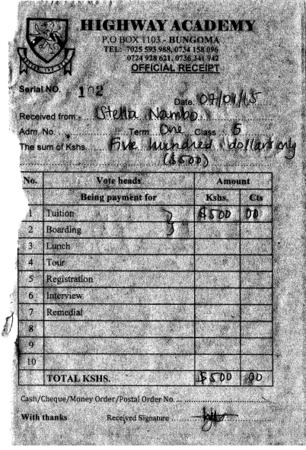 HIGHWAY ACADEMY
P.O BOX 1103 - BUNGOMA
TEL: 7025 593 988, 0734 158 096
0724 928 621, 0736 341 942
OFFICIAL RECEIPT
Serial NO. 102
Date. 07/01/15
Received from Stella Nambo
Adm. No. Term One Class 5
The sum of Kshs. Five hundred dollars only
($500)
No. Vote heads Amount
Being payment for Kshs. Cts
1 Tuition $500 00
2 Boarding
3 Lunch
4 Tour
5 Registration
6 Interview
7 Remedial
8
9
10
TOTAL KSHS. $500 00
Cash/Cheque/Money Order/Postal Order No.
With thanks Received Signature